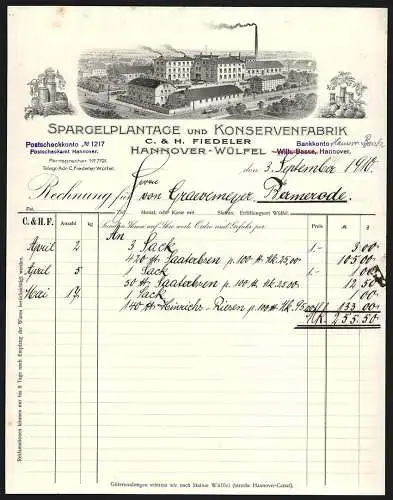 SPARGELPLANTAGE UND KONSERVENFABRIK
C. & H. FIEDELER
HANNOVER-WÜLFEL
Postscheckkonto № 1217
Postscheckamt Hannover.
Fernsprecher № 7721.
Telegr.-Adr. C. Fiedeler Wülfel.
Bankkonto
Wilh. Basse, Hannover.
den 3. September 1910.
Rechnung für Herrn
von Graevemeyer, Bemerode.
C. & H. F. Anzahl kg
Senden Ihnen auf Ihre werte Ordre und Gefahr per
An
April 2 3 Sack 1- 3 00
420 ℔ Saaterbsen p. 100 ℔ Mk. 25.00 105 00
April 5 1 Sack 1- 1 00
50 ℔ Saaterbsen p. 100 ℔ Mk. 25.00 12 50
Mai 17. 1 Sack 1- 1 00
140 ℔ Hinrichs-Riesen p. 100 ℔ Mk. 95.00 133 00
Mk. 255.50
Reklamationen können nur bis 8 Tage nach Empfang der Waren berücksichtigt werden.
Gütersendungen erbitten wir nach Station Wülfel (Strecke Hannover-Cassel).